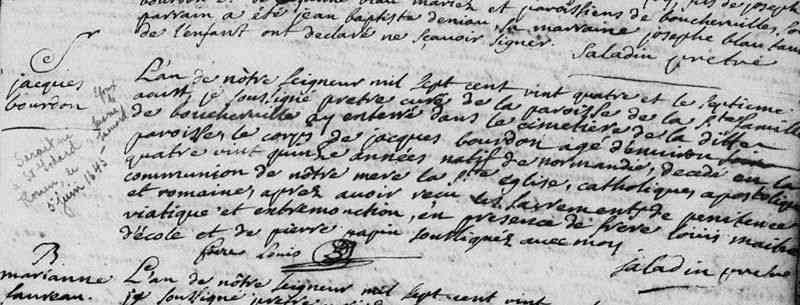 parrain a été jean baptiste deniau la marraine josephe blau
de l'enfant ont declaré ne scavoir signer.
saladin pretre
Sr
jacques
bourdon
L'an de nôtre Seigneur mil sept cent vint quatre et le septieme
aoust je sousigné pretre curé de la paroisse de la Ste famille
de boucherville ay enterré dans le cimetiere de la ditte
paroisse le corps de jacques bourdon agé d'environ
quatre vint quinze années natif de normandie, decedé en la
communion de nôtre mere la ste eglise, catholique, apostolique
et romaine, aprez avoir recu les sacrements de penitence
viatique et extremonction, en presence de frere louis maitre
d'école et de pierre papin sousignés avec moy
frere Louis
saladin pretre
B
marianne
L'an de nôtre Seigneur mil sept cent vint
je sousigné pretre